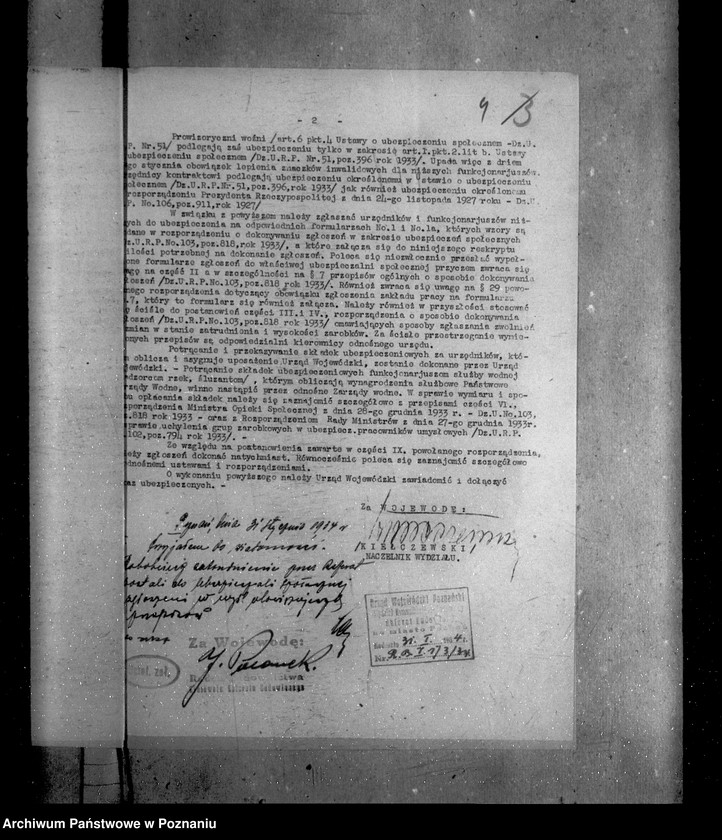 - 2 -
Prowizoryczni woźni /art.6 pkt.4 Ustawy o ubezpieczeniu społecznem -Dz.U.
P. Nr.51/ podlegają zaś ubezpieczeniu tylko w zakresie art.1.pkt.2.lit b. Ustawy
ubezpieczeniu społecznem /Dz.U.R.P. Nr.51,poz.396 rok 1933/. Upada więc z dniem
go stycznia obowiązek lepienia znaczków inwalidowych dla niższych funkcjonarjuszów.
zędnicy kontraktowi podlegają ubezpieczeniu określonemu w Ustawie o ubezpieczeniu
ołecznem /Dz.U.R.P.Nr.51,poz.396,rok 1933/ jak również ubezpieczeniu określonemu
rozporządzeniu Prezydenta Rzeczypospolitej z dnia 24-go listopada 1927 roku - Dz.U.
P. No.106,poz.911,rok 1927/
W związku z powyższem należy zgłaszać urzędników i funkcjonarjuszów niż-
ych do ubezpieczenia na odpowiednich formularzach No.1 i No.1a, których wzory są
dane w rozporządzeniu o dokonywaniu zgłoszeń w zakresie ubezpieczeń społecznych
z.U.R.P.No.103,poz.818,rok 1933/, a które załącza się do niniejszego reskryptu
ilości potrzebnej na dokonanie zgłoszeń. Poleca się niezwłocznie przesłać wypeł-
one formularze zgłoszeń do właściwej ubezpieczalni społecznej przyczem zwraca się
agę na część II a w szczególności na § 7 przepisów ogólnych o sposobie dokonywania
łoszeń /Dz.U.R.P.No.103,poz.818 rok 1933/. Również zwraca się uwagę na § 29 powo-
nego rozporządzenia dotyczący obowiązku zgłoszenia zakładu pracy na formularzu
.7, który to formularz się również załącza. Należy również w przyszłości stosować
ę ściśle do postanowień części III.i IV., rozporządzenia o sposobie dokonywania
łoszeń /Dz.U.R.P.No.103,poz.818 rok 1933/ omawiających sposoby zgłaszania zwolnień
zmian w stanie zatrudnienia i wysokości zarobków. Za ścisłe przestrzeganie wymie-
onych przepisów są odpowiedzialni kierownicy odnośnego urzędu.
Potrącanie i przekazywanie składek ubezpieczeniowych za urzędników, któ-
m oblicza i asygnuje uposażenie Urząd Wojewódzki, zostanie dokonane przez Urząd
jewódzki. - Potrącanie składek ubezpieczeniowych funkcjonarjuszom służby wodnej
adzorcom rzek, śluzantom/, którym obliczają wynagrodzenia służbowe Państwowe
rządy Wodne, winno nastąpić przez odnośne Zarządy wodne. W sprawie wymiaru i spo-
bu opłacania składek należy się zaznajomić szczegółowo z przepisami części VI.,
zporządzenia Ministra Opieki Społecznej z dnia 28-go grudnia 1933 r. - Dz.U.No.103,
z.818 rok 1933 - oraz z Rozporządzeniem Rady Ministrów z dnia 27-go grudnia 1933r.
sprawie uchylenia grup zarobkowych w ubezpiecz.pracowników umysłowych /Dz.U.R.P.
.102,poz.794 rok 1933/. -
Ze względu na postanowienia zawarte w części IX. powołanego rozporządzenia,
leży zgłoszeń dokonać natychmiast. Równocześnie poleca się zaznajomić szczegółowo
odnośnemi ustawami i rozporządzeniami.
O wykonaniu powyższego należy Urząd Wojewódzki zawiadomić i dołączyć
az ubezpieczonych. -
Za WOJEWODĘ:
/KIEŁCZEWSKI/
NACZELNIK WYDZIAŁU.
31 stycznia 1934 r
Przyjąłem do wiadomości.
Za Wojewodę:
Urząd Wojewódzki Poznański
31. I. 1934 r.
Archiwum Państwowe w Poznaniu